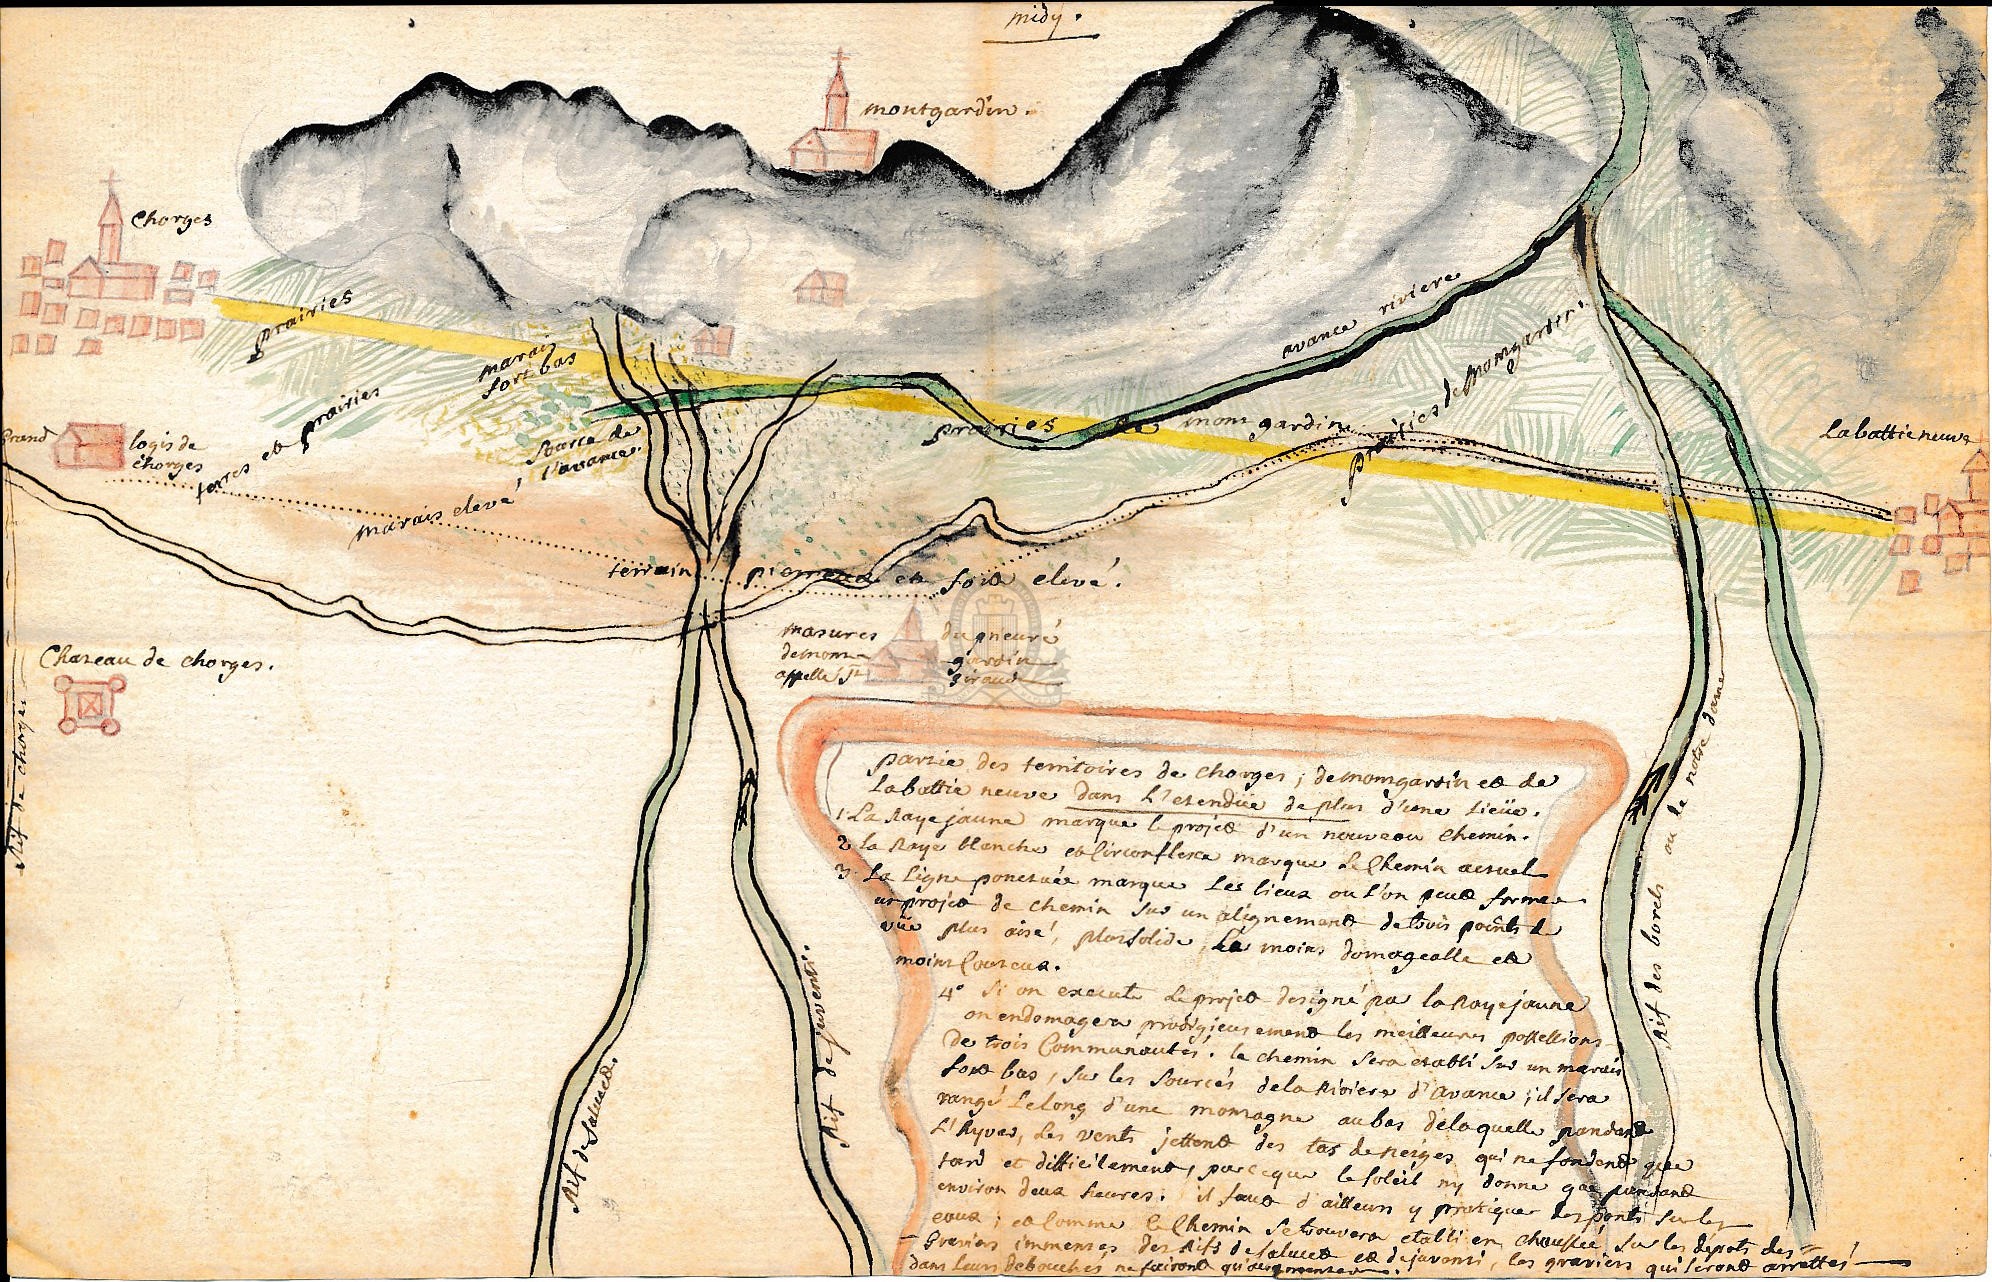 midy.
montgardin.
Chorges
prairies
marais
fort bas
avance riviere
prairies de momgardin
prairies de mont gardin
Labattie neuve
Grand
logis de
chorges
terres et prairies
Source de
l'avance.
marais elevé
terrain pierreux et fort elevé.
Chateau de chorges.
masures du prieuré
de mom gardin
appellé St giraud
Rif de chorges
Rif de Saluces.
Rif de juventi.
Rif des borels ou de notre dame
partie des territoires de Chorges, de momgardin et de
Labattie neuve dans L'etendüe de plus d'une Lieüe.
1. La Raye jaune marque le projet d'un nouveau Chemin.
2. La Raye blanche et Circonflexe marque Le Chemin actuel
3. La Ligne ponctuée marque Les lieux ou l'on peut former
un projet de chemin sur un alignement de trois points de
vüe plus aisé, plus solide, Le moins domageable et
moins Couteux.
4° Si on execute Le projet designé par la Raye jaune
on endomagera prodigieusement les meilleures possessions
de trois Communautés. le chemin sera etabli sur un marais
fort bas, sur les Sources de la Riviere d'avance; il sera
rangé Le long d'une montagne au bas de laquelle pandant
L'hyver, Les vents jettent des tas de neiges qui ne fondent que
tard et difficilement, parceque le Soleil n'y donne que pandant
environ deux heures. il faut d'ailleurs y pratiquer des ponts sur les
eaux; et Comme Le Chemin se trouvera etabli en chaussée sur les depots des
graviers immenses des Rifs de Saluces et de juventi, les graviers qui seront arrettés
dans leurs debouchés ne fairont qu'augmenter.